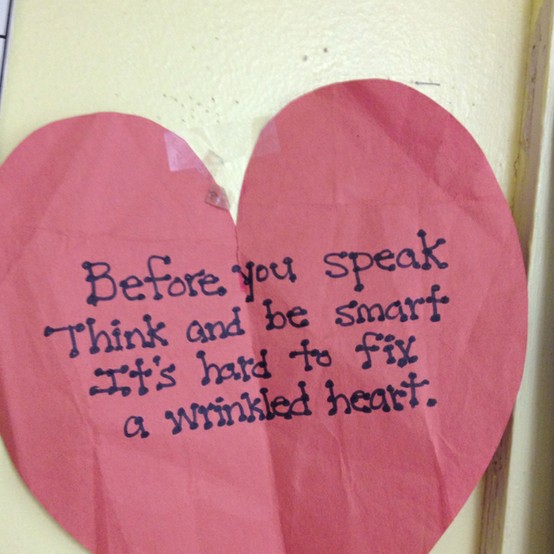 Before you speak
Think and be smart
It's hard to fix
a wrinkled heart.